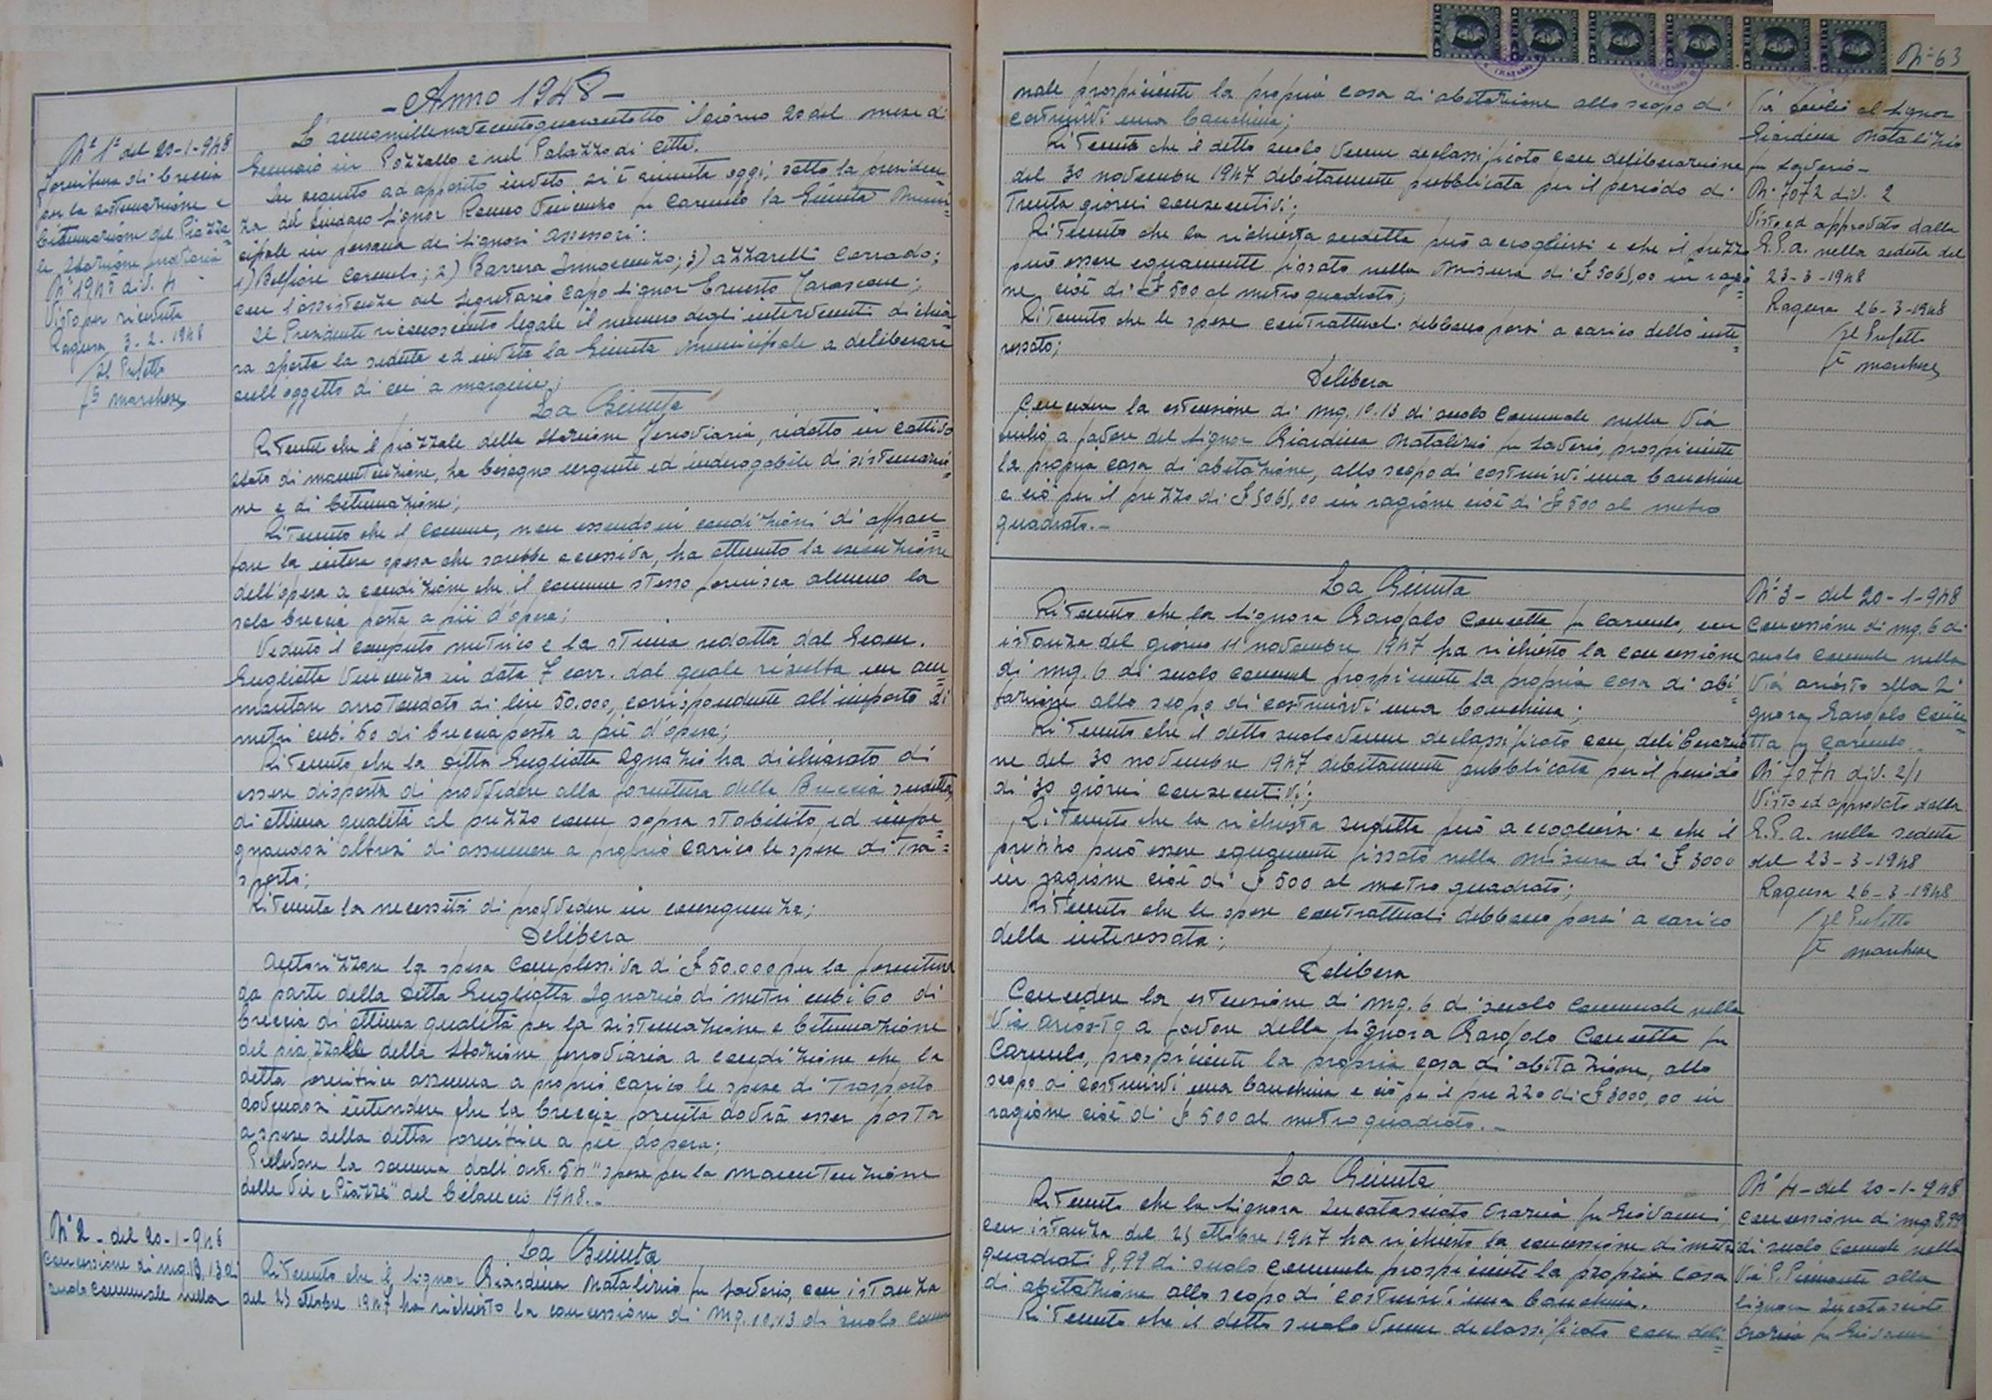 - Anno 1948 -
N° 1° del 20-1-948
fornitura di breccia
per la sistemazione e
bitumazione del Piazza=
le stazione ferroviaria
N° 1945 div. 4
Visto per ricevuta
Ragusa 3-2-1948
Il Prefetto
f° Marchese
L'anno millenovecentoquarantotto il giorno 20 del mese di
Gennaio in Pozzallo e nel Palazzo di Città.
In seguito ad apposito invito, si è riunita oggi, sotto la presiden=
za del Sindaco Signor Romeo Vincenzo fu Carmelo la Giunta Muni=
cipale in persona dei Signori Assessori:
1) Belfiore Carmelo; 2) Barrera Innocenzo; 3) Azzarelli Corrado;
con l'assistenza del Segretario Capo Signor Ernesto
Il Presidente riconosciuto legale il numero degli intervenuti dichia=
ra aperta la seduta ed invita la Giunta Municipale a deliberare
sull'oggetto di cui a margine;
La Giunta
Ritenuto che il piazzale della Stazione Ferroviaria, ridotto in cattivo
stato di manutenzione, ha bisogno urgente ed inderogabile di sistemazio=
ne e di bitumazione;
Ritenuto che il Comune, non essendo in condizioni di affron=
tare la intera spesa che sarebbe eccessiva, ha ottenuto la esecuzione
dell'opera a condizione che il comune stesso fornisca almeno la
sola breccia posta a piè d'opera;
Veduto il computo metrico e la stima redatta dal Geom.
Gugliotta Vincenzo in data 7 corr. dal quale risulta un am=
montare arrotondato di lire 50.000, corrispondente all'importo di
metri cubi 60 di breccia posta a piè d'opera;
Ritenuto che la Ditta Gugliotta Ignazio ha dichiarato di
essere disposta di provvedere alla fornitura della Breccia suddetta,
di ottima qualità al prezzo come sopra stabilito ed impe=
gnandosi altresì di assumere a proprio carico le spese di tra=
sporto;
Ritenuta la necessità di provvedere in conseguenza;
Delibera
Autorizzare la spesa complessiva di £ 50.000 per la fornitura
da parte della Ditta Gugliotta Ignazio di metri cubi 60 di
breccia di ottima qualità per la sistemazione e bitumazione
del piazzale della Stazione ferroviaria a condizione che la
detta fornitrice assuma a proprio carico le spese di trasporto
dovendosi intendere che la breccia fornita dovrà esser posta
a spese della detta fornitrice a piè d'opera;
Prelevare la somma dall'art. 54 "spese per la manutenzione
delle Vie e Piazze" del bilancio 1948.-
N° 2 - del 20-1-948
Concessione di mq. 10,13 di
suolo comunale nella
La Giunta
Ritenuto che il Signor Giardina Natalizio fu Saverio, con istanza
del 25 ottobre 1947 ha richiesto la concessione di mq. 10,13 di suolo comu
N° 63
nale prospiciente la propria casa di abitazione allo scopo di
costruirvi una banchina;
Ritenuto che il detto suolo venne declassificato con deliberazione
del 30 novembre 1947 debitamente pubblicata per il periodo di
trenta giorni consecutivi;
Ritenuto che la richiesta suddetta può accogliersi e che il prezzo
può essere equamente fissato nella misura di £ 5065,00 in ragio=
ne cioè di £ 500 al metro quadrato;
Ritenuto che le spese contrattuali debbono porsi a carico dello inte=
ressato;
Delibera
Concedere la estensione di mq. 10.13 di suolo Comunale nella Via
a favore del Signor Giardina Natalizio fu Saverio, prospiciente
la propria casa di abitazione, allo scopo di costruirvi una banchina
e ciò per il prezzo di £ 5065,00 in ragione cioè di £ 500 al metro
quadrato.-
Via al Signor
Giardina Natalizio
fu Saverio -
N° 7072 div. 2
Visto ed approvato dalla
G.P.A. nella seduta del
23-3-1948
Ragusa 26-3-1948
Il Prefetto
f° Marchese
La Giunta
Ritenuto che la Signora Garofalo Concetta fu Carmelo, con
istanza del giorno 4 novembre 1947 ha richiesto la concessione
di mq. 6 di suolo comunale prospiciente la propria casa di abi=
tazione allo scopo di costruirvi una banchina;
Ritenuto che il detto suolo venne declassificato con deliberazio=
ne del 30 novembre 1947 debitamente pubblicata per il periodo
di 30 giorni consecutivi;
Ritenuto che la richiesta suddetta può accogliersi e che il
prezzo può essere equamente fissato nella misura di £ 3000
in ragione cioè di £ 500 al metro quadrato;
Ritenuto che le spese contrattuali debbono porsi a carico
della interessata;
Delibera
Concedere la estensione di mq. 6 di suolo Comunale nella
Via Ariosto a favore della Signora Garofalo Concetta fu
Carmelo, prospiciente la propria casa di abitazione, allo
scopo di costruirvi una banchina e ciò per il prezzo di £ 3000,00 in
ragione cioè di £ 500 al metro quadrato.-
N° 3 - del 20-1-948
Concessione di mq. 6 di
suolo comunale nella
Via Ariosto alla Si=
gnora Garofalo Conce=
tta fu Carmelo.-
N° 7074 div. 2/1
Visto ed approvato dalla
G.P.A. nella seduta
del 23-3-1948
Ragusa 26-3-1948
Il Prefetto
f° Marchese
La Giunta
Ritenuto che la Signora Incatasciato Orazia fu Giovanni,
con istanza del 25 ottobre 1947 ha richiesto la concessione di metri
quadrati 8,99 di suolo comunale prospiciente la propria casa
di abitazione allo scopo di costruirvi una banchina.
Ritenuto che il detto suolo venne declassificato con deli=
N° 4 - del 20-1-948
Concessione di mq. 8,99
di suolo Comunale nella
Via P. Piemonte alla
Signora Incatasciato
Orazia fu Giovanni